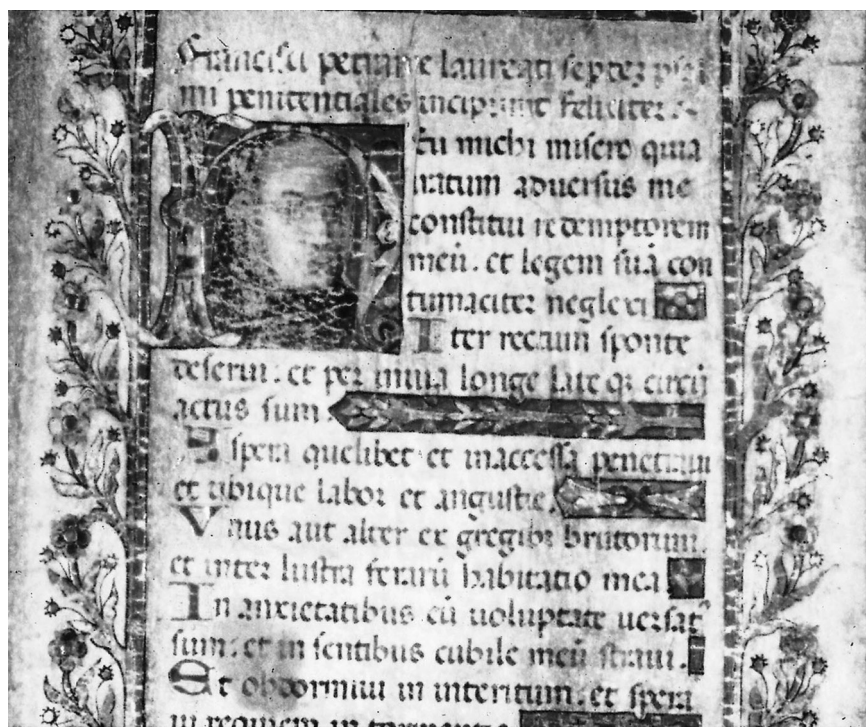 Francisci petrarce laureati septez psal
mi penitentiales incipiunt feliciter
Eu michi misero quia
iratum aduersus me
constitui redemptorem
meū. et legem suā con
tumaciter neglexi
Iter rectum sponte
deserui. et per inuia longe late qz circū
actus sum.
Aspera quelibet et inaccessa penetraui
et ubique labor et angustie.
Vnus aut alter ex gregibz brutorum.
et inter lustra ferarū habitatio mea
In anxietatibus cū uoluptate uersat⁹
sum. et in sentibus cubile meū straui.
Et obdormiui in interitum. et spera
ui requiem in tormentis